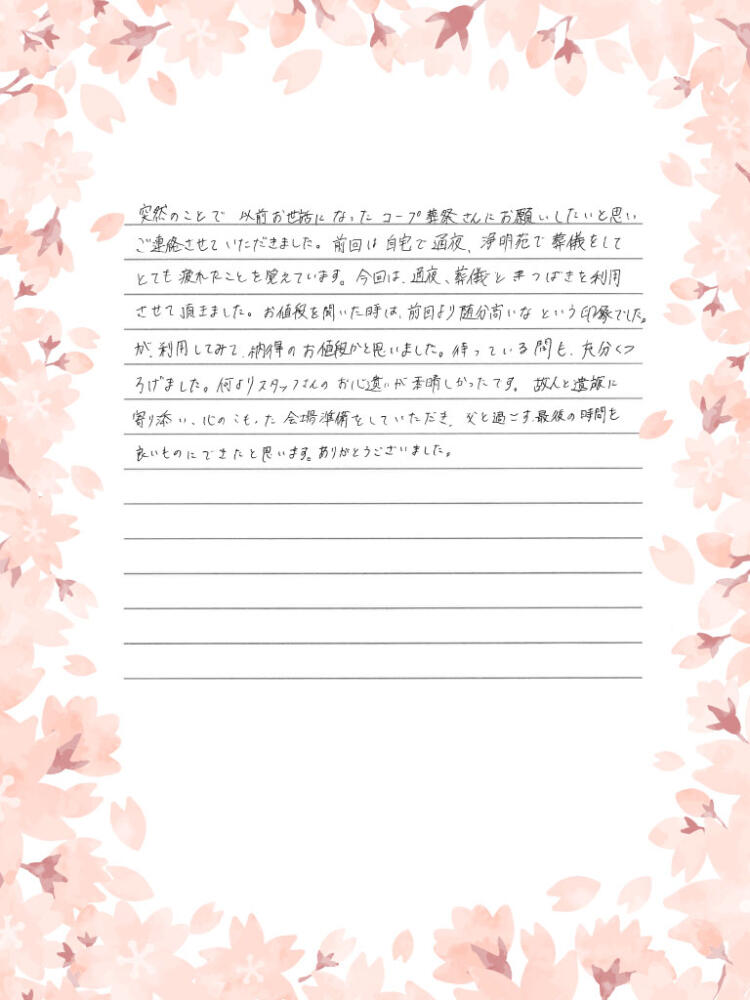 突然のことで 以前お世話になった コープ葬祭さんにお願いしたいと思い
ご連絡させていただきました。前回は自宅で通夜、浄明苑で葬儀をして
とても疲れたことを覚えています。今回は、通夜、葬儀ときつばきを利用
させて頂きました。お値段を聞いた時は、前回より随分高いなという印象でした。
が、利用してみて、納得のお値段かと思いました。待っている間も、充分くつ
ろげました。何よりスタッフさんのお心遣いが素晴しかったです。故人と遺族に
寄り添い、心のこもった会場準備をしていただき、父と過ごす最後の時間も
良いものにできたと思います。ありがとうございました。